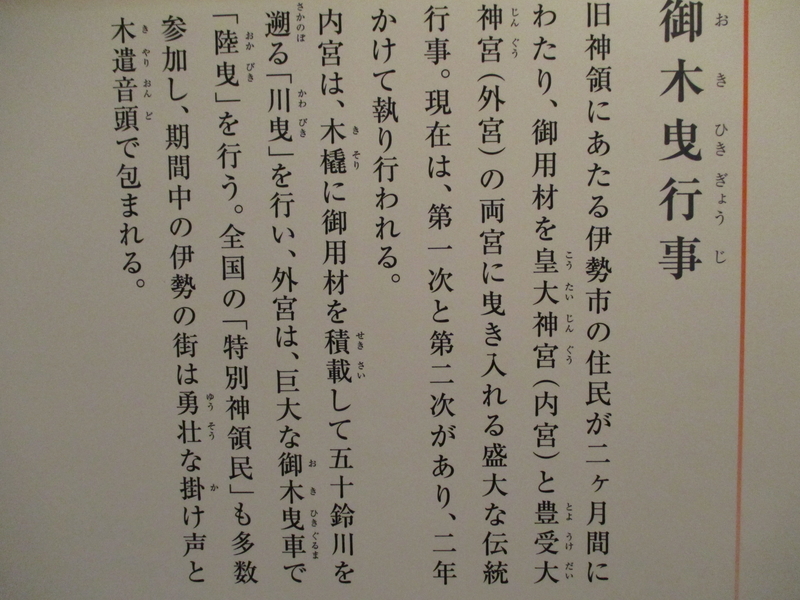 御木曳行事
旧神領にあたる伊勢市の住民が二ヶ月間に
わたり、御用材を皇大神宮（内宮）と豊受大
神宮（外宮）の両宮に曳き入れる盛大な伝統
行事。現在は、第一次と第二次があり、二年
かけて執り行われる。
内宮は、木橇に御用材を積載して五十鈴川を
遡る「川曳」を行い、外宮は、巨大な御木曳車で
「陸曳」を行う。全国の「特別神領民」も多数
参加し、期間中の伊勢の街は勇壮な掛け声と
木遣音頭で包まれる。